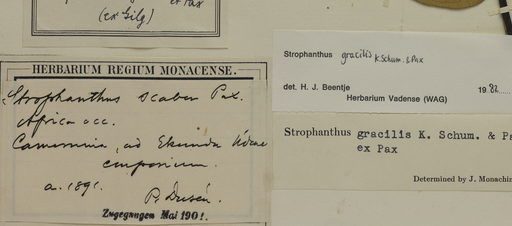 ex Pax
(ex Gilg)
HERBARIUM REGIUM MONACENSE.
Strophanthus scaber Pax.
Africa occ.
Camerunia, ad Ekundu
emporium.
a. 1891.
P. Dusén.
Zugegangen Mai 1901.
Strophanthus gracilis K. Schum. & Pax
det. H. J. Beentje 1982
Herbarium Vadense (WAG)
Strophanthus gracilis K. Schum. & Pa
ex Pax
Determined by J. Monachin